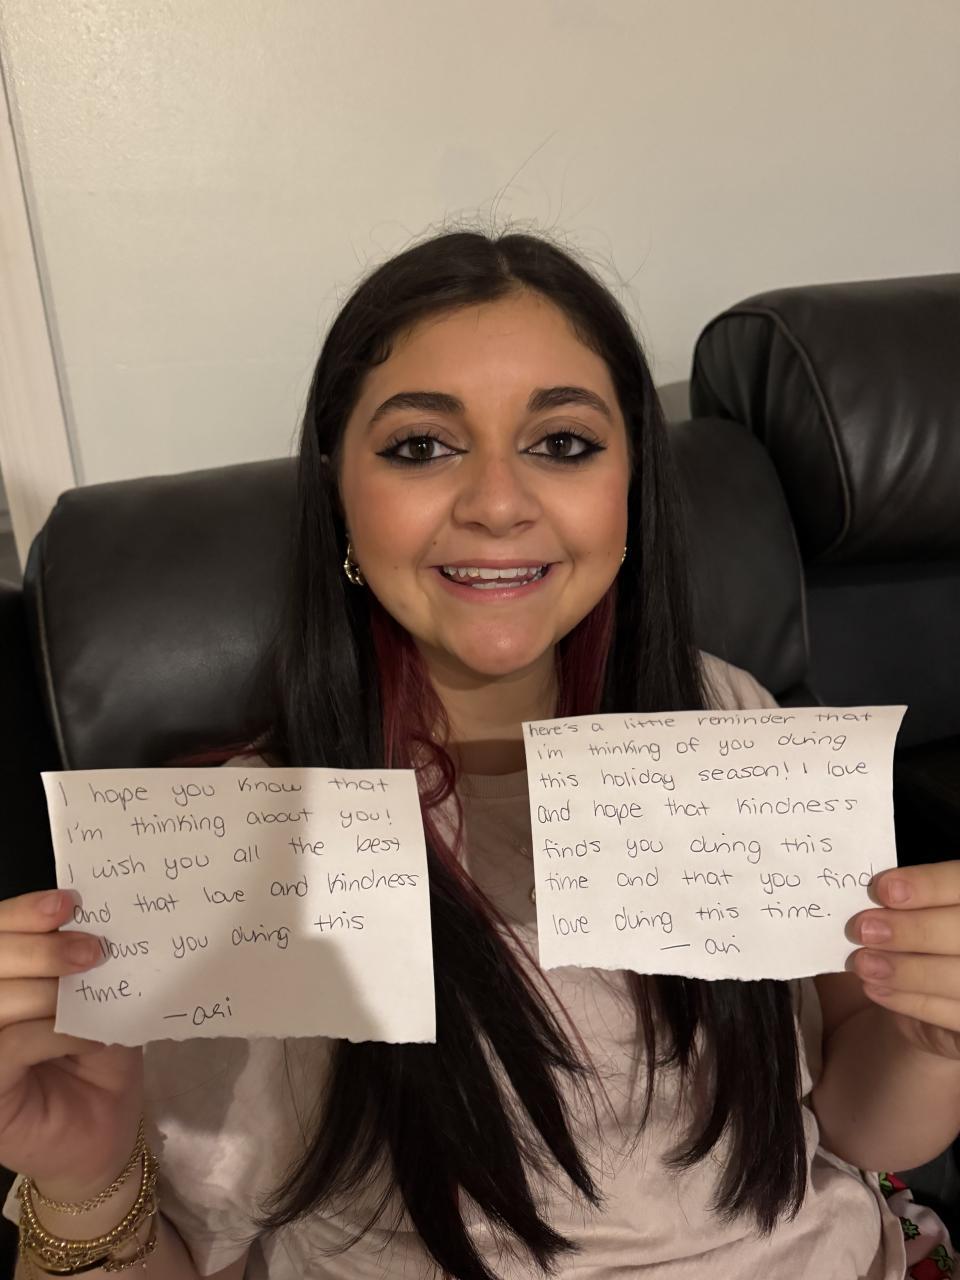 I hope you know that
I'm thinking about you!
I wish you all the best
and that love and kindness
llows you during this
time.
— ari
here's a little reminder that
i'm thinking of you during
this holiday season! I love
and hope that kindness
finds you during this
time and that you find
love during this time.
— ari